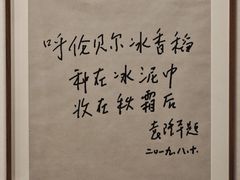 呼伦贝尔冰香稻
种在冰泥中
收在秋霜后
袁隆平题
二〇一九.八.十.